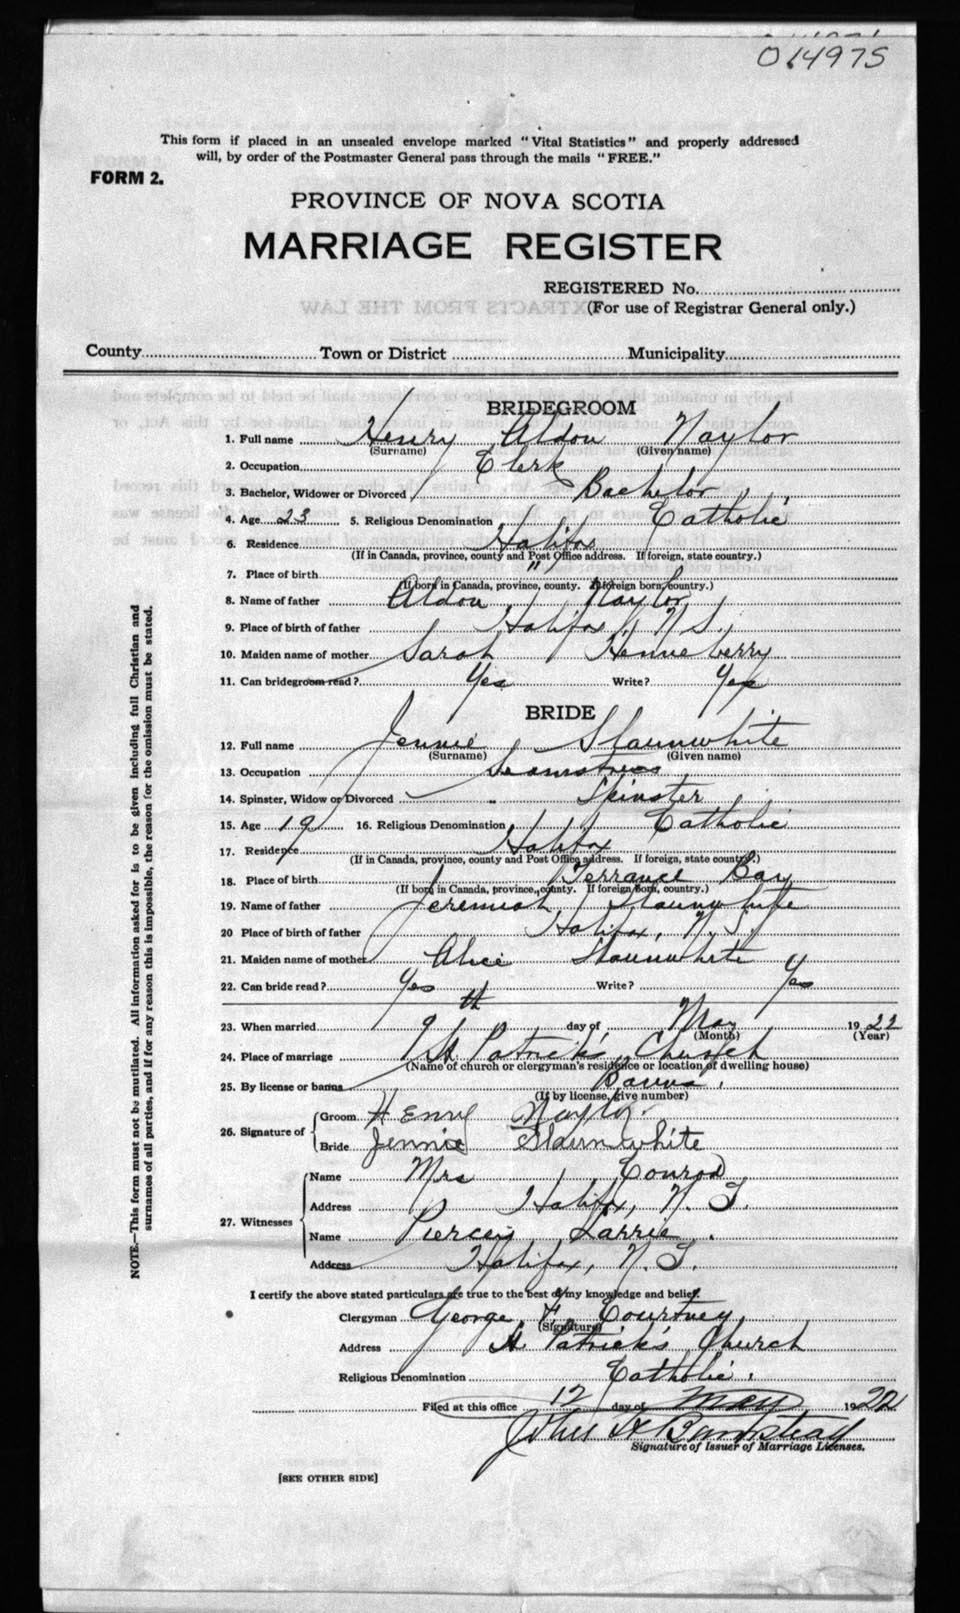 014975
This form if placed in an unsealed envelope marked "Vital Statistics" and properly addressed
will, by order of the Postmaster General pass through the mails "FREE."
FORM 2.
PROVINCE OF NOVA SCOTIA
MARRIAGE REGISTER
REGISTERED No.
(For use of Registrar General only.)
County Town or District Municipality
BRIDEGROOM
1. Full name Henry Aldon Naylor
(Surname) (Given name)
2. Occupation Clerk
3. Bachelor, Widower or Divorced Bachelor
4. Age 23 5. Religious Denomination Catholic
6. Residence Halifax
(If in Canada, province, county and Post Office address. If foreign, state country.)
7. Place of birth "
(If born in Canada, province, county. If foreign born, country.)
8. Name of father Aldon Naylor
9. Place of birth of father Halifax N.S.
10. Maiden name of mother Sarah Henneberry
11. Can bridegroom read? Yes Write? Yes
BRIDE
12. Full name Jennie Slaunwhite
(Surname) (Given name)
13. Occupation Seamstress
14. Spinster, Widow or Divorced " Spinster
15. Age 19 16. Religious Denomination Catholic
17. Residence Halifax
(If in Canada, province, county and Post Office address. If foreign, state country.)
18. Place of birth Terrance Bay
(If born in Canada, province, county. If foreign born, country.)
19. Name of father Jeremiah Slaunwhite
20 Place of birth of father Halifax, N.S.
21. Maiden name of mother Alice Slaunwhite
22. Can bride read? Yes Write? Yes
23. When married 9th day of May 1922
(Month) (Year)
24. Place of marriage St Patrick's Church
(Name of church or clergyman's residence or location of dwelling house)
25. By license or banns Banns.
(If by license, give number)
26. Signature of Groom Henry Naylor
Bride Jennie Slaunwhite
27. Witnesses Name Mrs Conrod
Address Halifax, N.S.
Name Piercey Larrie
Address Halifax, N.S.
I certify the above stated particulars are true to the best of my knowledge and belief.
Clergyman George F. Courtney
(Signature)
Address St Patrick's Church
Religious Denomination Catholic.
Filed at this office 12 day of May 1922
Signature of Issuer of Marriage Licenses.
[SEE OTHER SIDE]
NOTE.—This form must not be mutilated. All information asked for is to be given including full Christian and
surnames of all parties, and if for any reason this is impossible, the reason for the omission must be stated.